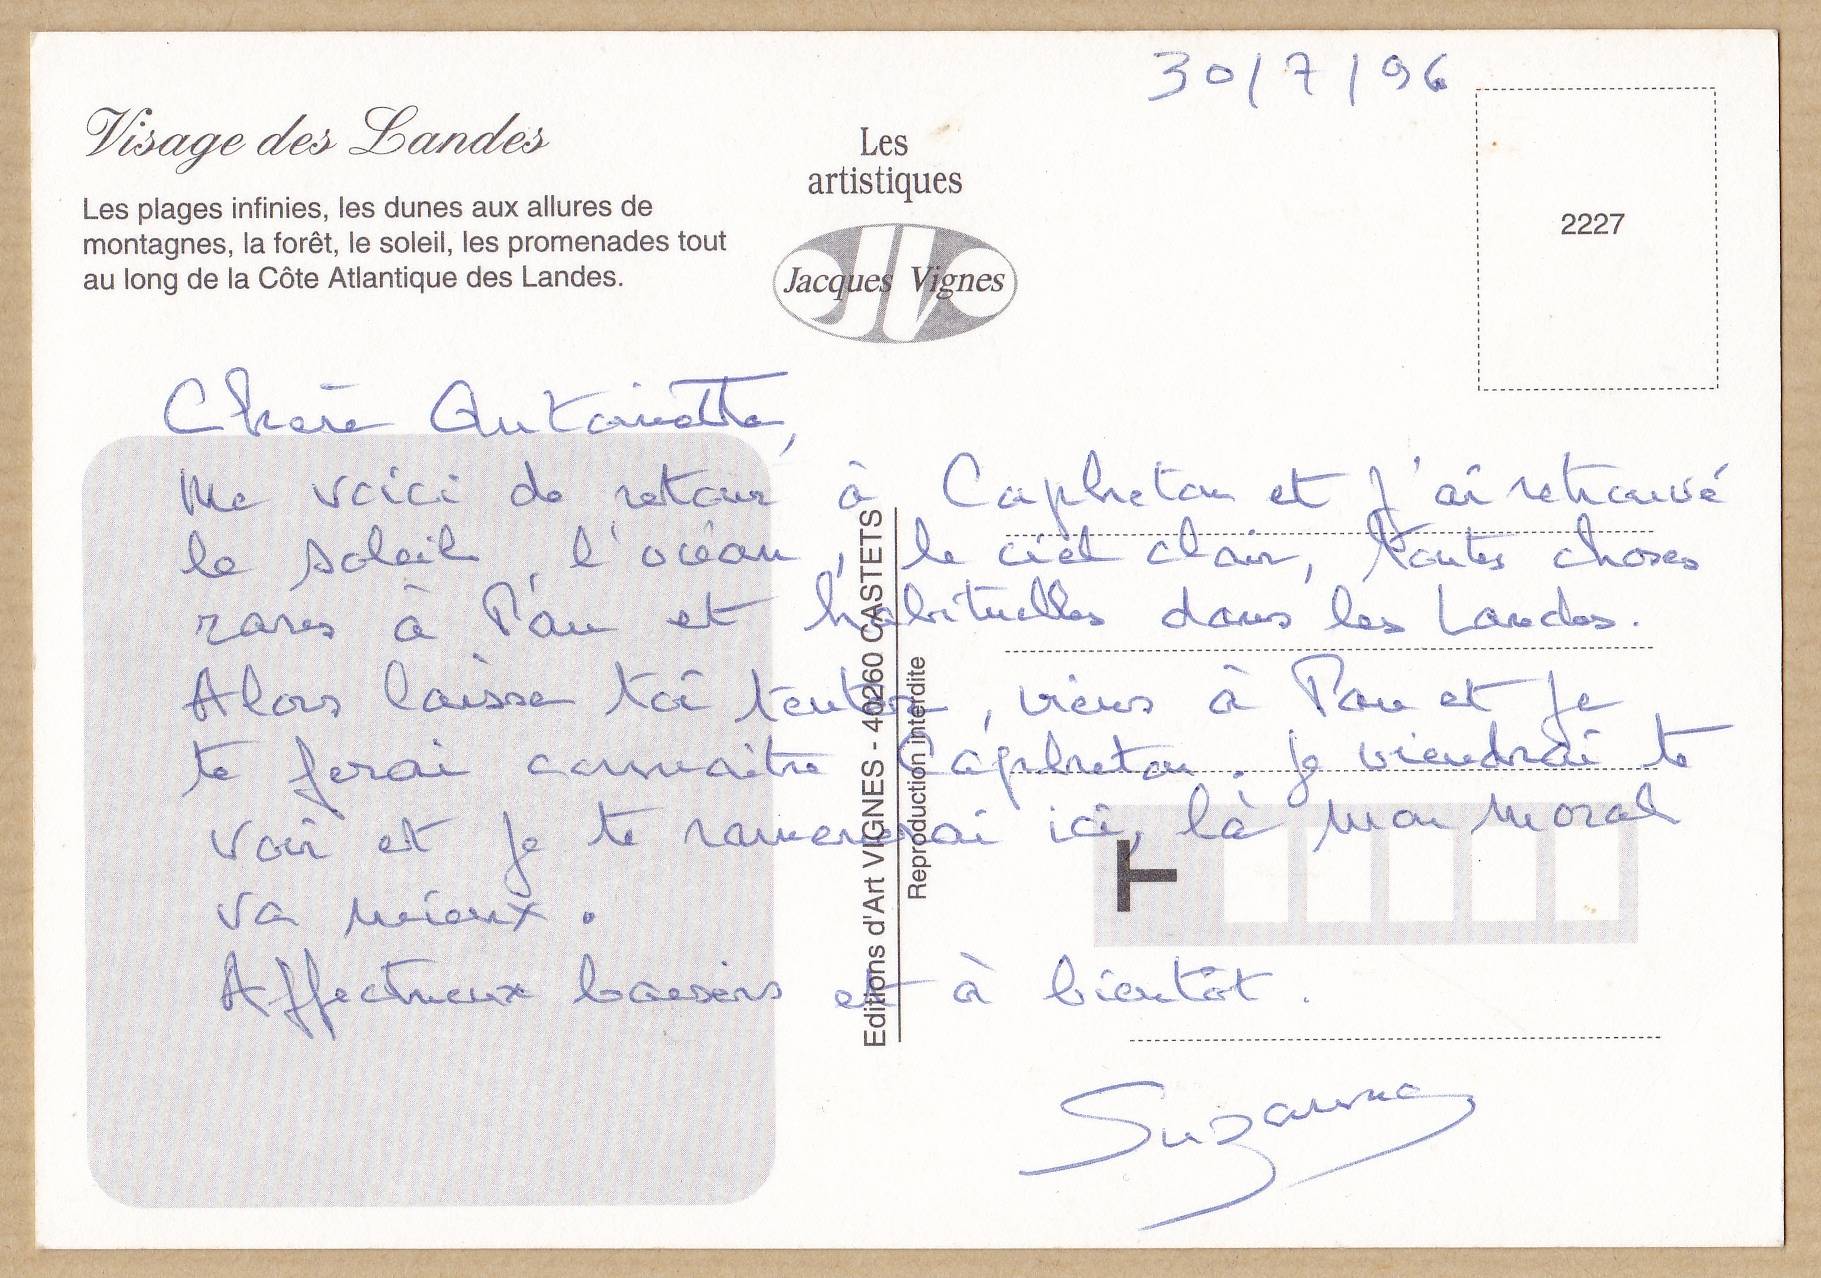 30/7/96
Visage des Landes
Les plages infinies, les dunes aux allures de
montagnes, la forêt, le soleil, les promenades tout
au long de la Côte Atlantique des Landes.
Les
artistiques
Jacques Vignes
2227
Chère Antoinette,
Me voici de retour à Capbreton et j'ai retrouvé
le soleil, l'océan, le ciel clair, toutes choses
rares à Pau et habituelles dans les Landes.
Alors laisse toi tenter, viens à Pau et je
te ferai connaitre Capbreton. Je viendrai te
voir et je te ramenerai ici, là mon moral
va mieux.
Affectueux baisers et à bientôt.
Suzanne
Editions d'Art VIGNES - 40260 CASTETS
Reproduction interdite
T